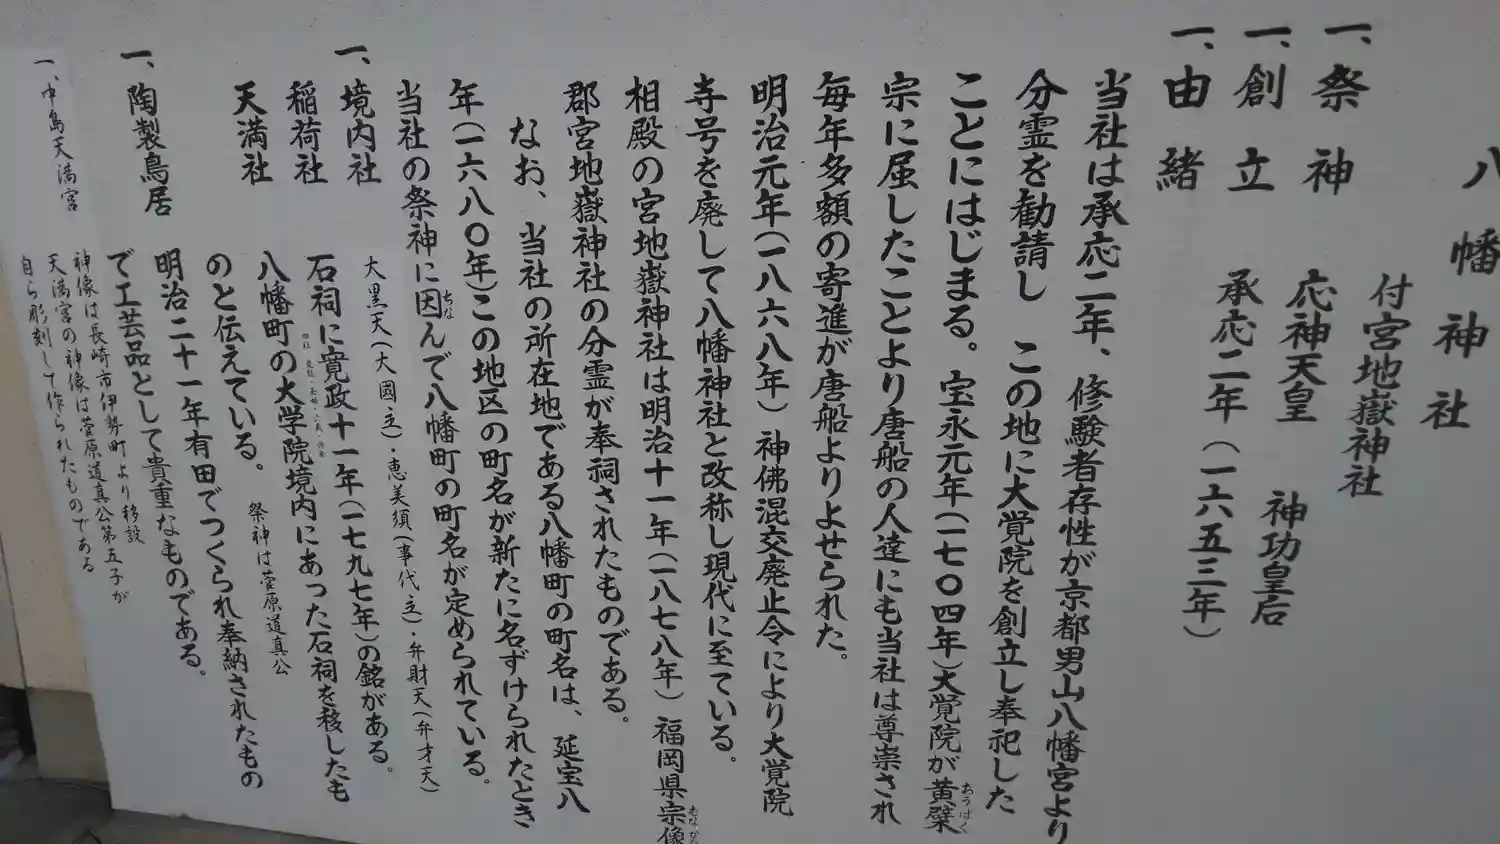 八幡神社
付宮地嶽神社
一、祭神 応神天皇 神功皇后
一、創立 承応二年(一六五三年)
一、由緒
当社は承応二年、修験者存性が京都男山八幡宮より
分霊を勧請し この地に大覚院を創立し奉祀した
ことにはじまる。宝永元年(一七〇四年)大覚院が黄檗
おうばく
宗に屈したことより唐船の人達にも当社は尊崇され
毎年多額の寄進が唐船よりよせられた。
明治元年(一八六八年)神佛混交廃止令により大覚院
寺号を廃して八幡神社と改称し現代に至ている。
相殿の宮地嶽神社は明治十一年(一八七八年)福岡県宗像
むなかた
郡宮地嶽神社の分霊が奉祠されたものである。
なお、当社の所在地である八幡町の町名は、延宝八
年(一六八〇年)この地区の町名が新たに名ずけられたとき
当社の祭神に因んで八幡町の町名が定められている。
ちな
一、境内社 大黒天(大國主)・恵美須(事代主)・弁財天(弁才天)
稲荷社 石祠に寛政十一年(一七九七年)の銘がある。
天満社 八幡町の大学院境内にあった石祠を移したも
のと伝えている。 祭神は菅原道真公
一、陶製鳥居 明治二十一年有田でつくられ奉納されたもの
で工芸品として貴重なものである。
一、中島天満宮 神像は長崎市伊勢町より移設
天満宮の神像は菅原道真公第五子が
自ら彫刻して作られたものである